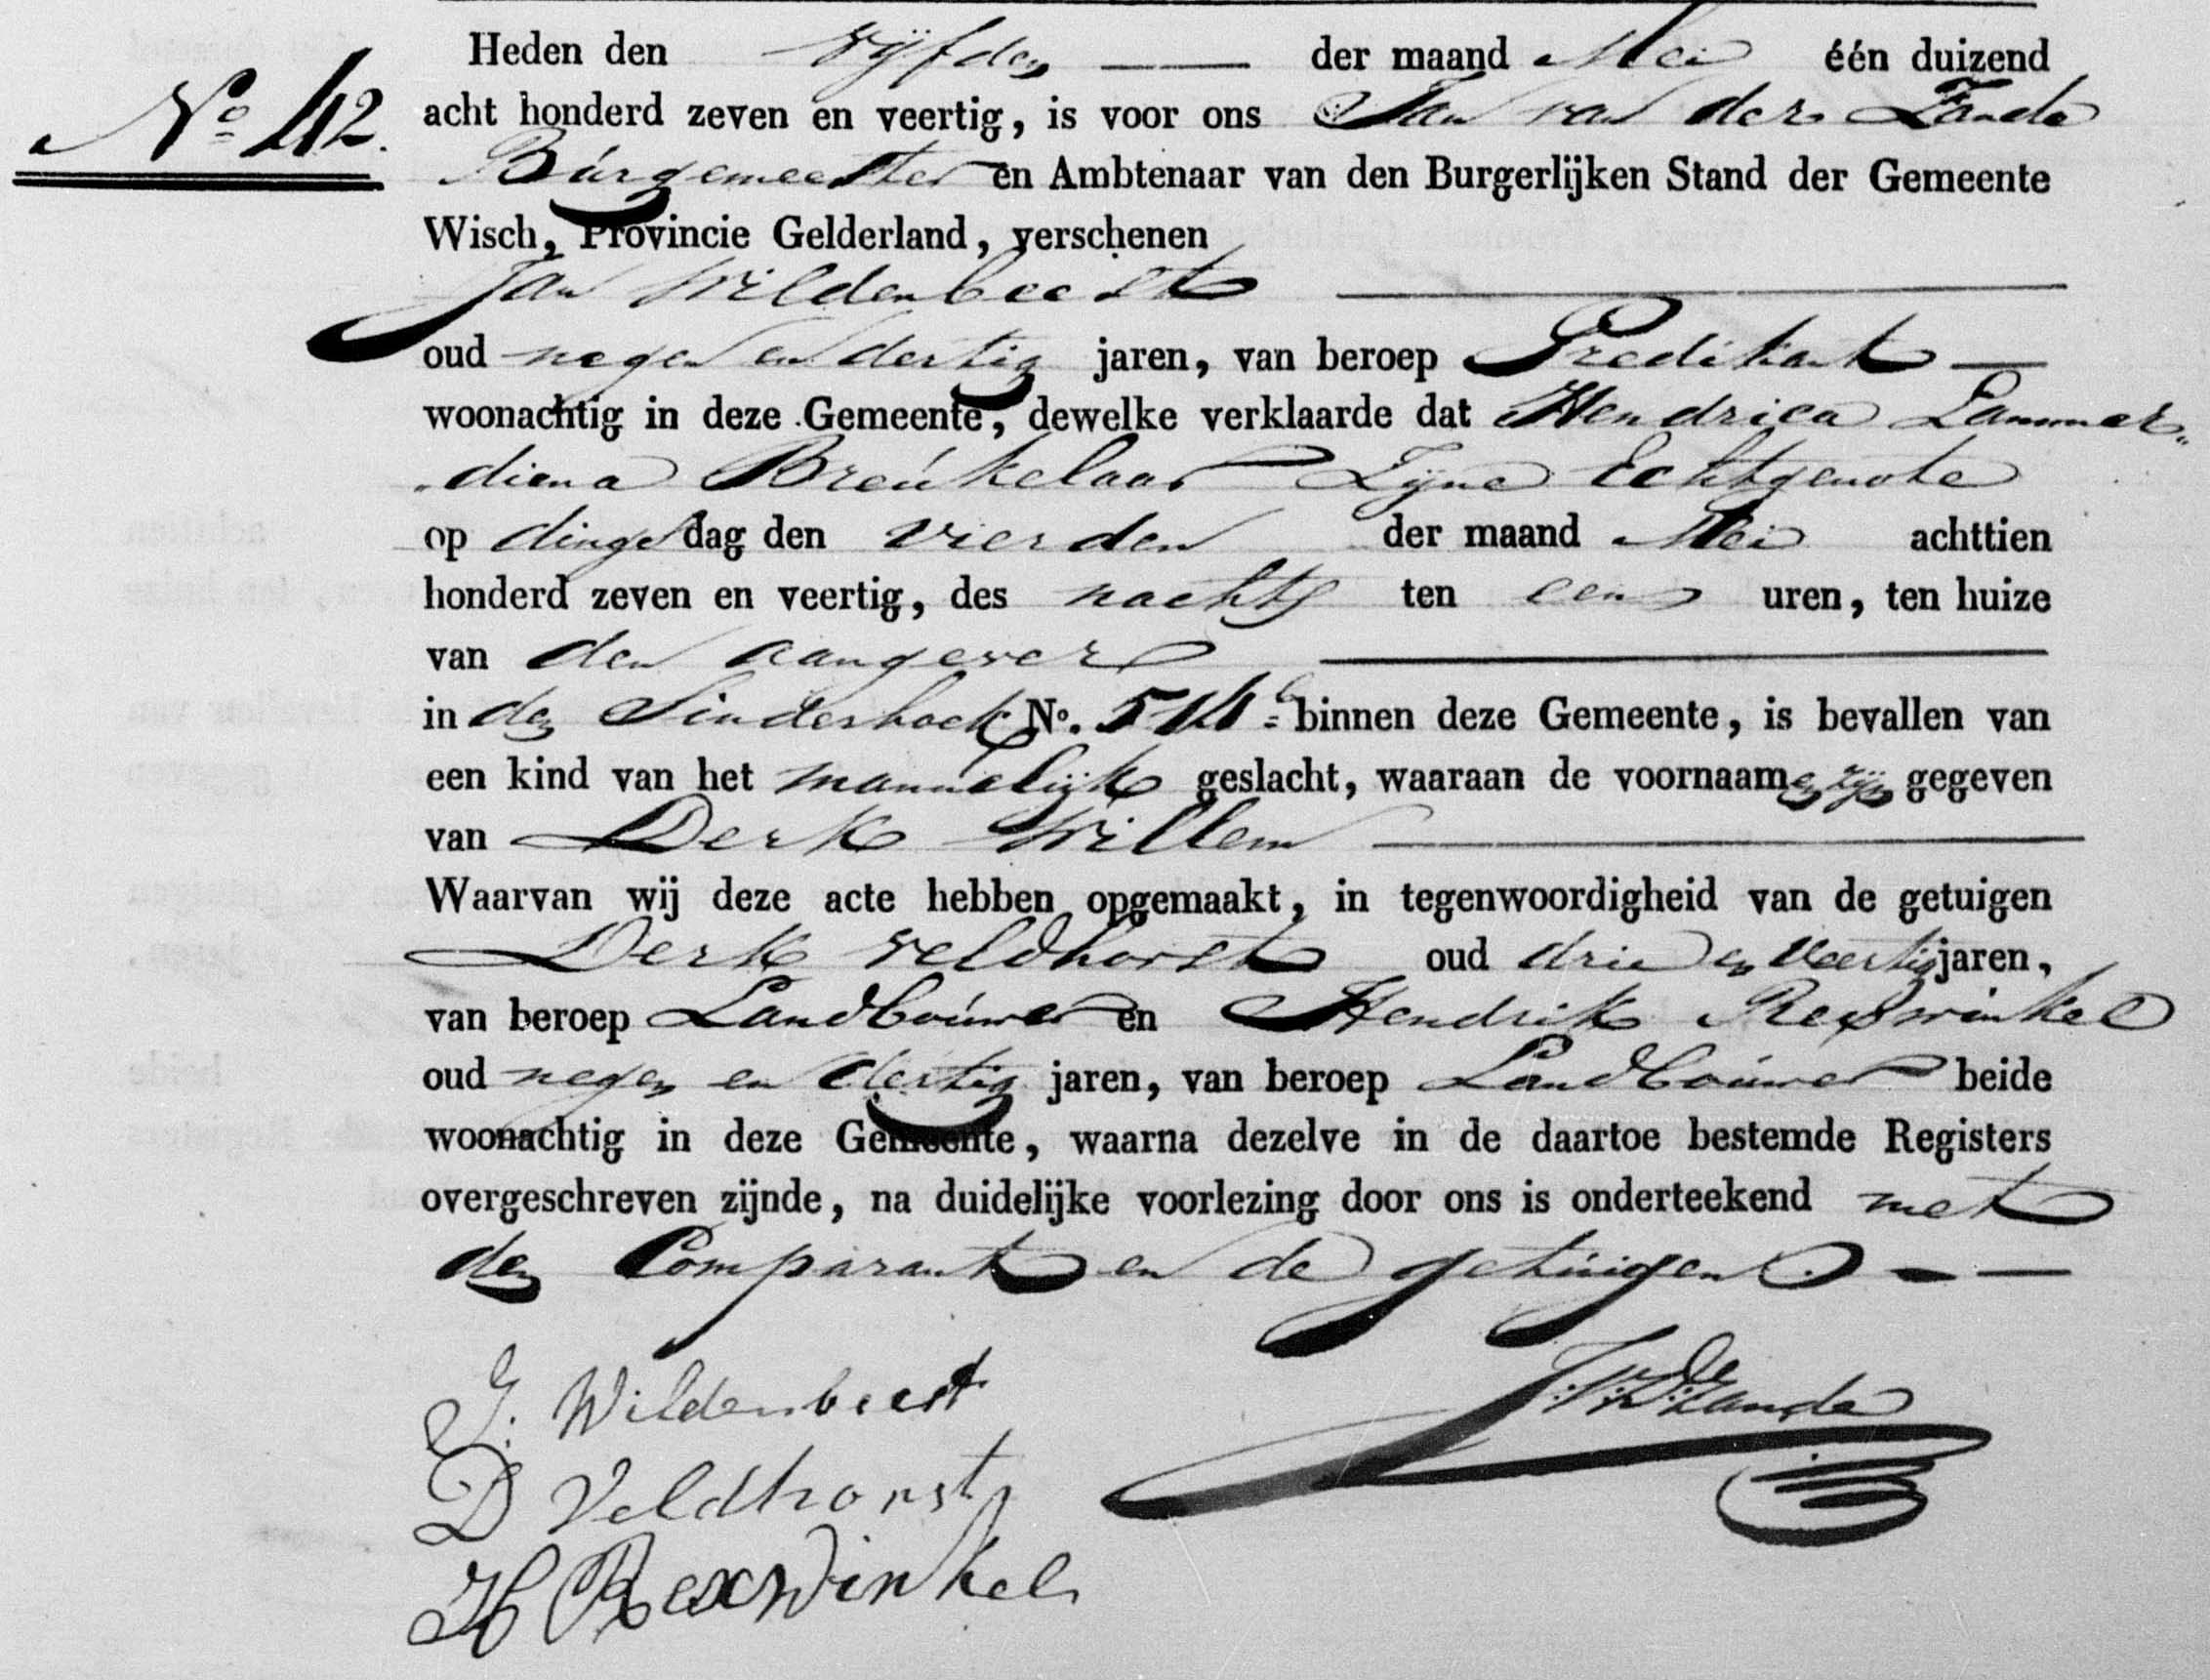 Heden den vijfden der maand Mei één duizend
No 42. acht honderd zeven en veertig, is voor ons Jan van der Zande
Burgemeester en Ambtenaar van den Burgerlijken Stand der Gemeente
Wisch, Provincie Gelderland, verschenen
Jan Wildenbeest
oud negen en dertig jaren, van beroep Predikant
woonachtig in deze Gemeente, dewelke verklaarde dat Hendrica Lammer„
„diena Breukelaar Zijne Echtgenote
op dingsdag den vierden der maand Mei achttien
honderd zeven en veertig, des nachts ten een uren, ten huize
van den aangever
in den Sinderhoek No. 514 binnen deze Gemeente, is bevallen van
een kind van het mannelijk geslacht, waaraan de voornaamen zijn gegeven
van Derk Willem
Waarvan wij deze acte hebben opgemaakt, in tegenwoordigheid van de getuigen
Derk Veldhorst oud drie en veertig jaren,
van beroep Landbouwer en Hendrik Rexwinkel
oud negen en dertig jaren, van beroep Landbouwer beide
woonachtig in deze Gemeente, waarna dezelve in de daartoe bestemde Registers
overgeschreven zijnde, na duidelijke voorlezing door ons is onderteekend met
den Comparant en de getuigen
J. Wildenbeest
J. V. D. Zande
D Veldhorst
H Rexwinkel